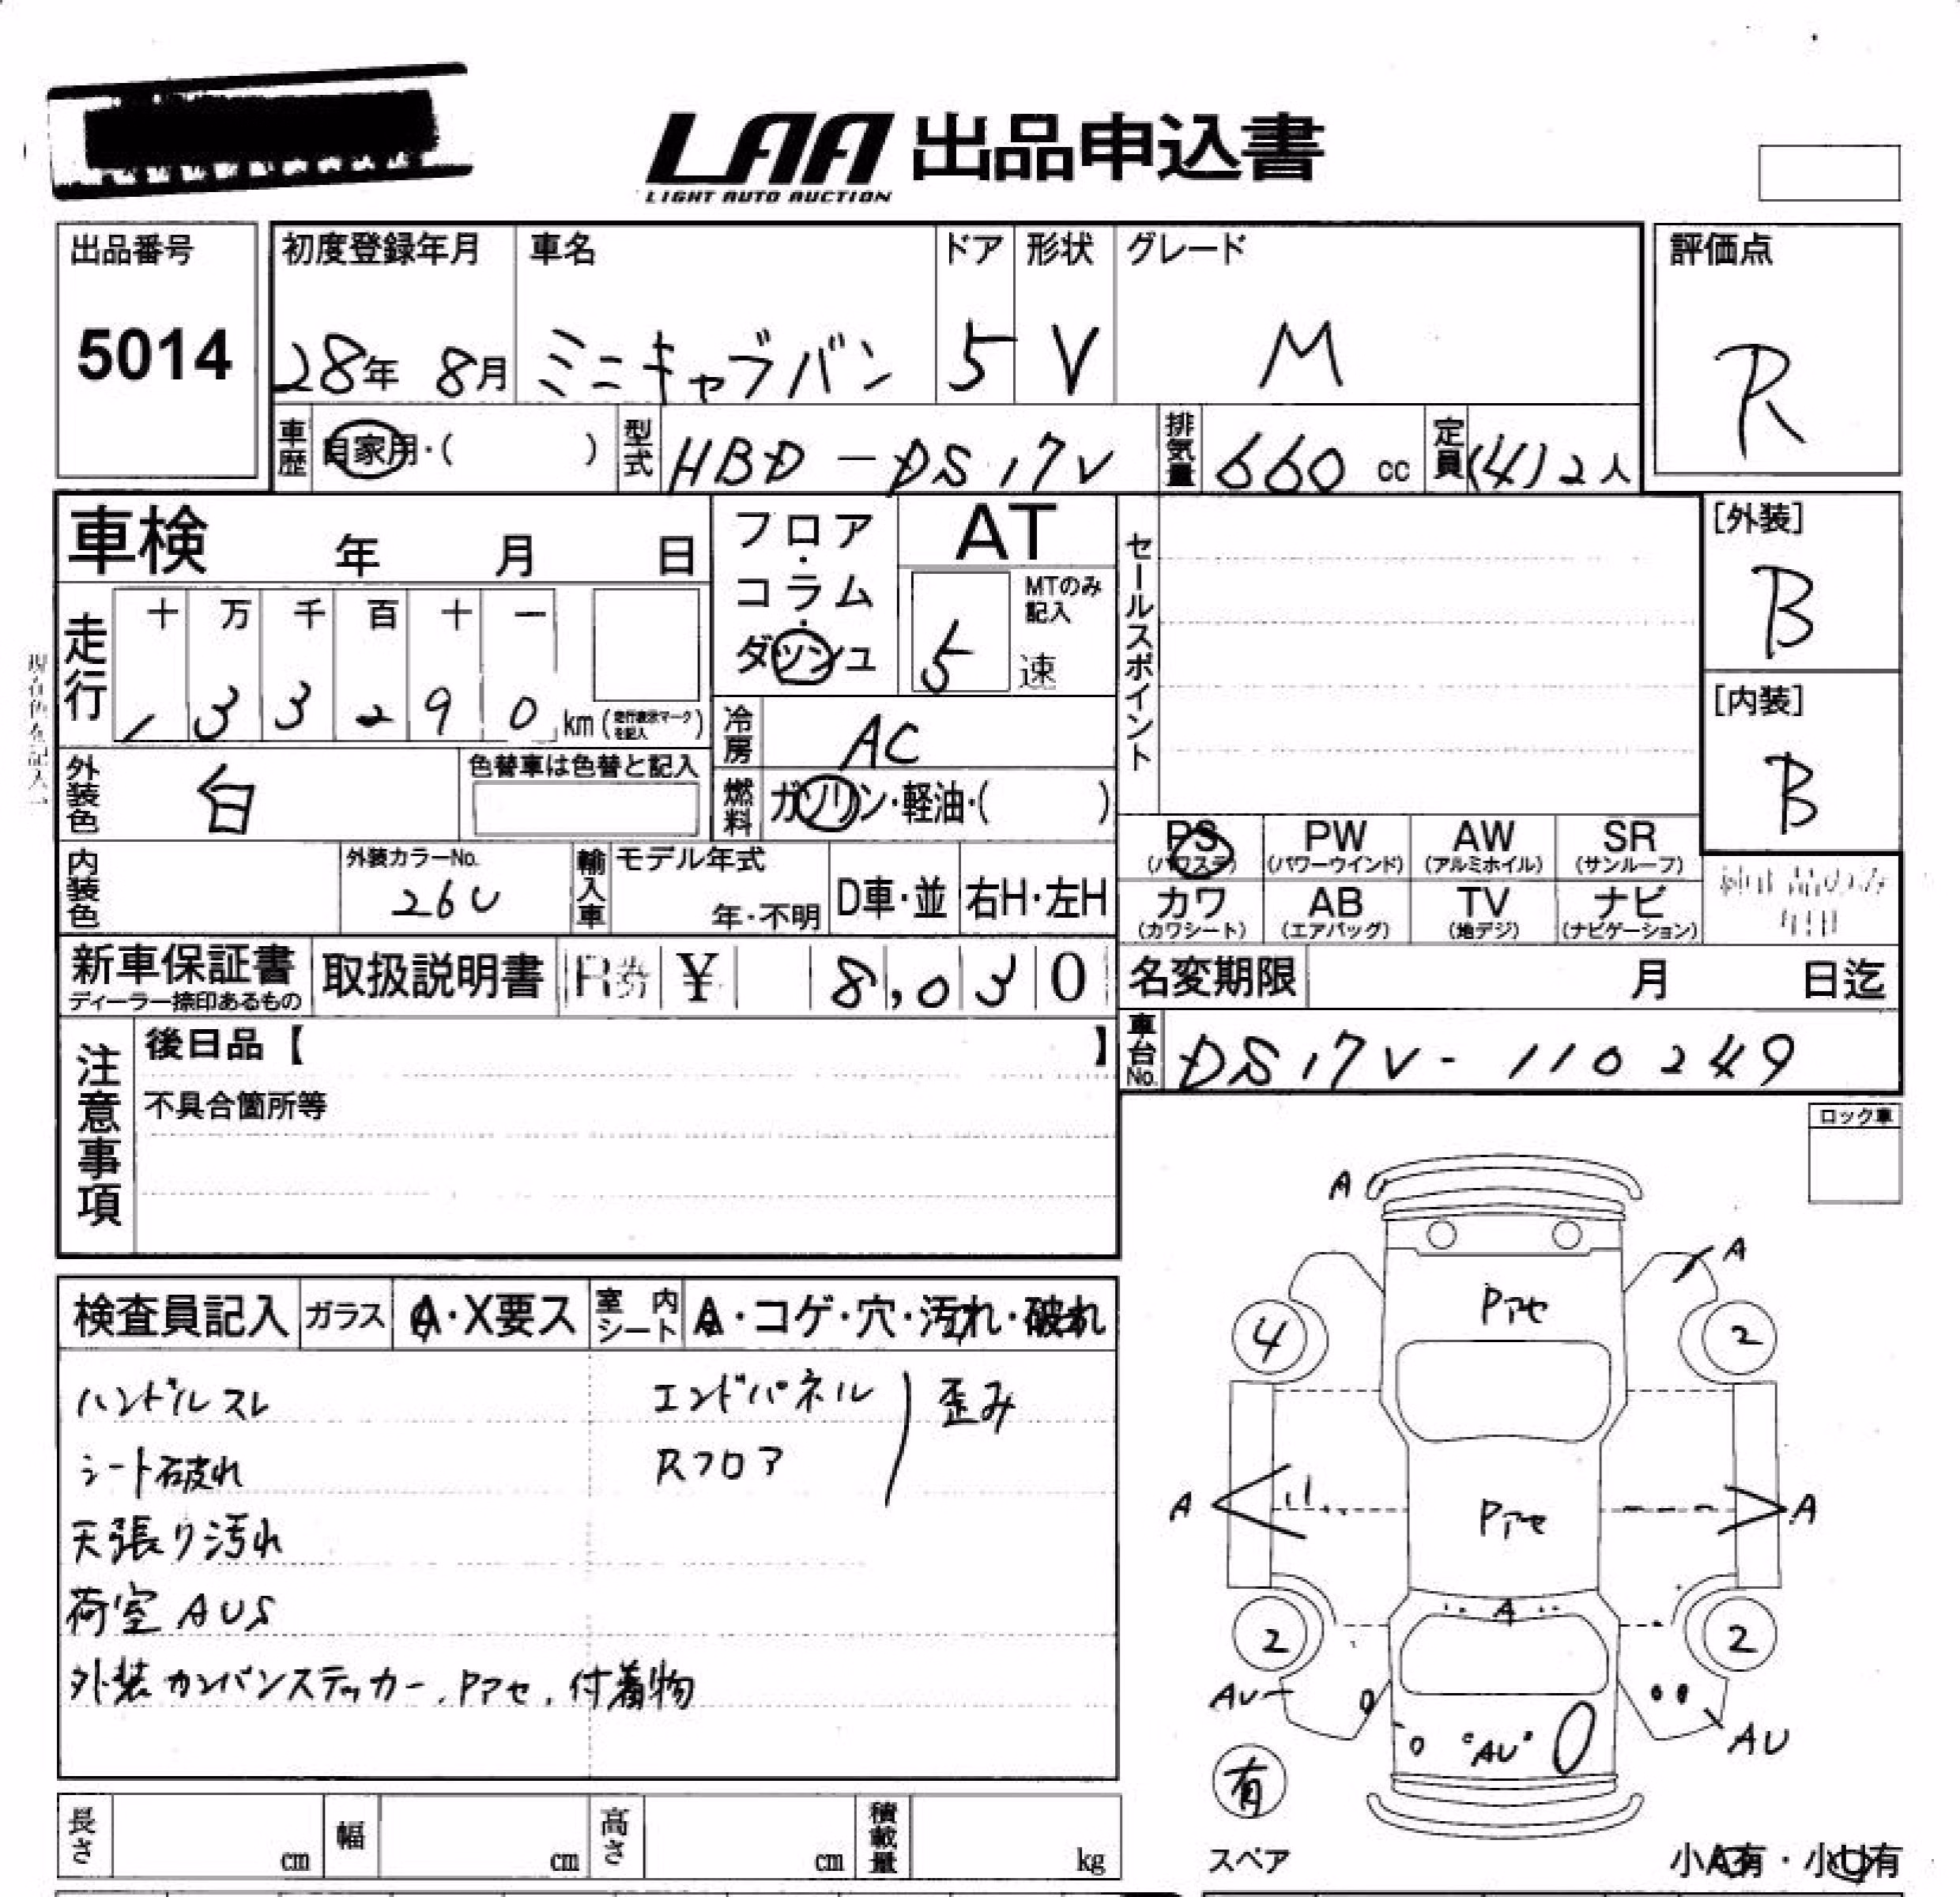 LAA 出品申込書
LIGHT AUTO AUCTION
出品番号
5014
初度登録年月
28年 8月
車名
ミニキャブバン
ドア
5
形状
V
グレード
M
評価点
R
車歴
自家用・( )
型式
HBD-DS17V
排気量
660 cc
定員
(4)2人
車検 年 月 日
フロア・コラム・ダッシュ
AT
MTのみ記入
5速
セールスポイント
[外装]
B
[内装]
B
走行
十 万 千 百 十 一
1 3 3 2 9 0 km (走行表示マークを記入)
冷房
AC
外装色
白
色替車は色替と記入
燃料
ガソリン・軽油・( )
PS (パワステ)
PW (パワーウインド)
AW (アルミホイル)
SR (サンルーフ)
カワ (カワシート)
AB (エアバッグ)
TV (地デジ)
ナビ (ナビゲーション)
内装色
外装カラーNo.
26U
輸入車
モデル年式
年・不明
D車・並
右H・左H
新車保証書
ディーラー捺印あるもの
取扱説明書
R券 ¥ 8,030
名変期限 月 日迄
車台No.
DS17V-110249
注意事項
後日品【 】
不具合箇所等
ロック車
検査員記入
ガラス
A・X要ス
室内シート
A・コゲ・穴・汚れ・破れ
ハンドルスレ
シート破れ
天張り汚れ
荷室AUS
外装カンバンステッカー、Pアセ、付着物
エンドパネル
Rフロア
歪み
A
A
Pアセ
4
2
A
Pアセ
A
A
2
2
AU
AU
AU
有
スペア
小A有・小U有
長さ cm
幅 cm
高さ cm
積載量 kg